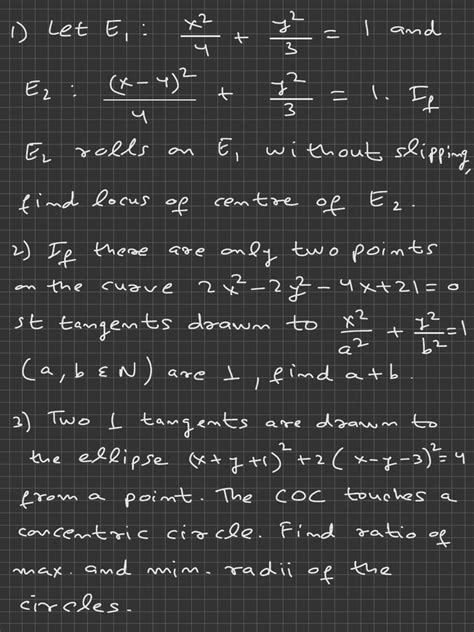 1) Let E₁ : x²/4 + y²/3 = 1 and
E₂ : (x-4)²/4 + y²/3 = 1. If
E₂ rolls on E₁ without slipping,
find locus of centre of E₂.
2) If there are only two points
on the curve 2x²-2y²-4x+21=0
st tangents drawn to x²/a² + y²/b²=1
(a, b ε N) are ⊥, find a+b.
3) Two ⊥ tangents are drawn to
the ellipse (x+y+1)²+2(x-y-3)²=4
from a point. The COC touches a
concentric circle. Find ratio of
max. and min. radii of the
circles.